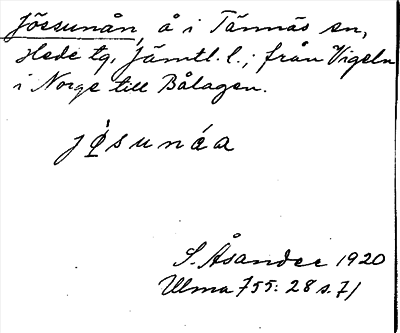 Jössunån, å i Tännäs sn,
Hede tg, Jämtl. l.; från Vigeln
i Norge till Bålagen.
S. Åsander 1920
Ulma 755: 28 s. 71